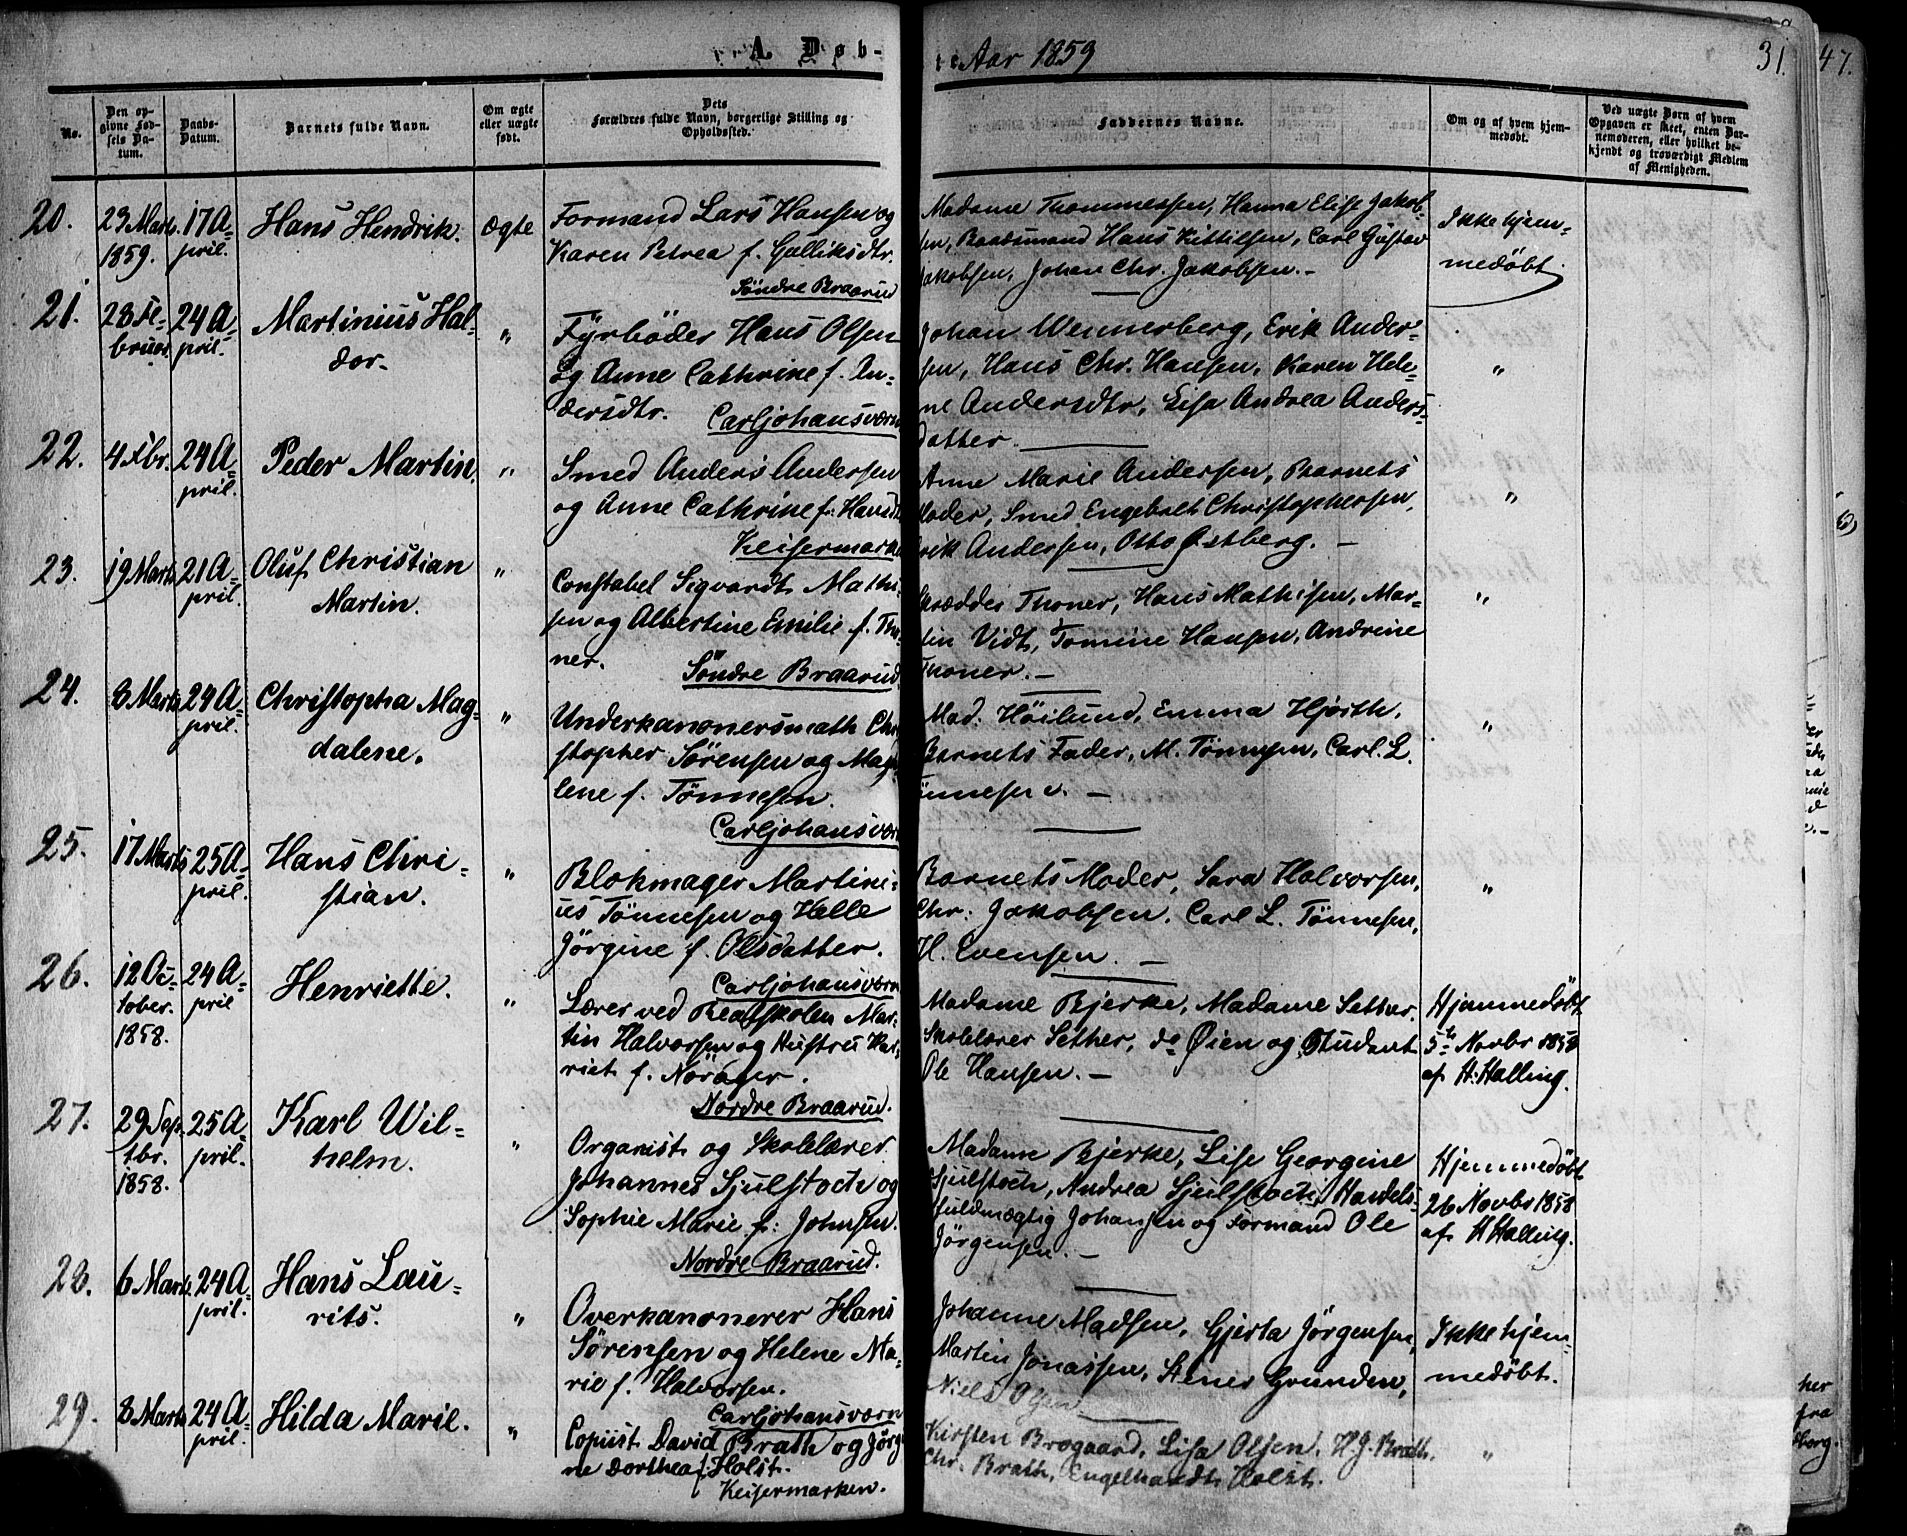 A. Døb-
Aar 1859
31.
47.
No.
Den op-
givne Fød-
sels Da-
tum.
Daabs-
Datum.
Barnets fulde Navn.
Om ægte
eller uægte
født.
Dets
Forældres fulde Navn, borgerlige Stilling og
Opholdssted.
Faddernes Navne.
Om og af hvem hjem-
medøbt.
Ved uægte Børn af hvem
Opgaven er skeet, enten Bar-
nemoderen, eller hvilket be-
kjendt og troværdigt Medlem
af Menigheden.
20.
23 Marts
1859.
17 A-
pril.
Hans Hendrik.
Ægte
Formand Lars Hansen og
Karen Petrea f. Galliksdtr.
Søndre Braarud
Madame Thommesen, Hanna Elise Jakob-
sen, Baadsmand Hans Kittilsen, Carl Gustav
Jakobsen, Johan Chr. Jakobsen. -
Ikke hjem-
medøbt
21.
28 Fe-
bruar.
24 A-
pril.
Martinius Hal-
dor.
"
Fyrbøder Hans Olsen
og Anne Cathrine f. An-
dersdtr.
Carljohansværn
Johan Wennerberg, Erik Ander-
sen, Hans Chr. Hansen, Karen Hele-
ne Andersdtr, Lisa Andrea Anders-
datter.
"
22.
4 Fbr.
24 A-
pril.
Peder Martin.
"
Smed Anders Andersen
og Anne Cathrine f. Hansdt
Keisermarke
Anne Marie Andersen, Barnets
Moder, Smed Engebret Christophersen,
Erik Andersen, Otto Østberg. -
"
23.
19 Marts
21 A-
pril.
Oluf Christian
Martin.
"
Constabel Sigvardt Mathi-
sen og Albertine Emilie f. Tho-
ner.
Søndre Braarud
Skrædder Thoner, Hans Mathisen, Mar-
tin Vidt, Tomine Hansen, Andrine
Thoner. -
"
24.
8 Marts
24 A-
pril.
Christopha Mag-
dalene.
"
Underkanonersmath Chri
stopher Sørensen og Magd
lene f. Tønnesen.
Carljohansværn
Mad. Høilund, Emma Hjorth,
Barnets Fader, M. Tønnesen, Carl. L.
Tønnesen. -
"
25.
17 Marts
25 A-
pril.
Hans Chri-
stian.
"
Blokmager Martini-
us Tønnesen og Helle
Jörgine f. Olsdatter.
Carljohansværn
Barnets Moder, Sara Halvorsen,
Chr. Jakobsen. Carl L. Tønnesen,
H. Evensen. -
"
26.
12 Oc-
tober.
1858.
24 A-
pril
Henriette.
"
Lærer ved Realskolen Mar-
tin Halvorsen og Hustru Har-
riet f. Norager.
Nordre Braarud.
Madame Bjerke, Madame Sether.
Skolelærer Sether, do Øien og Student
Ole Hansen. -
Hjemmedøbt
5te Novbr 1858
af H. Halling.
27.
29 Sep-
tbr.
1858.
25 A-
pril.
Karl Wil-
helm.
"
Organist og Skolelærer
Johannes Sjulstoch og
Sophie Marie f. Johnsen.
Nordre Braarud.
Madame Bjerke, Lise Georgine
Sjulstoch, Andrea Sjulstoch, Handels-
fuldmægtig Johansen og Formand Ole
Jørgensen. -
Hjemmedøbt
26 Novbr 1858
af H Halling.
28.
6 Marts
24 A-
pril.
Hans Lau-
rits.
"
Overkanonerer Hans
Sørensen og Helene Ma-
rie f. Halvorsen.
Carljohansværn
Johanne Madsen, Gjerta Jørgensen,
Martin Jonassen, Stener Grunden,
Niels Olsen
Ikke hjem-
medøbt.
29.
8 Marts
24 A-
pril.
Hilda Marie.
"
Copiist David Brath og Jørgi
ne Dorthea f. Holst.
Keisermarken.
Kirsten Brogaard, Lisa Olsen, H. J. Brath,
Chr. Brath, Engelhardt Holst.
"
her
fra
dborg.